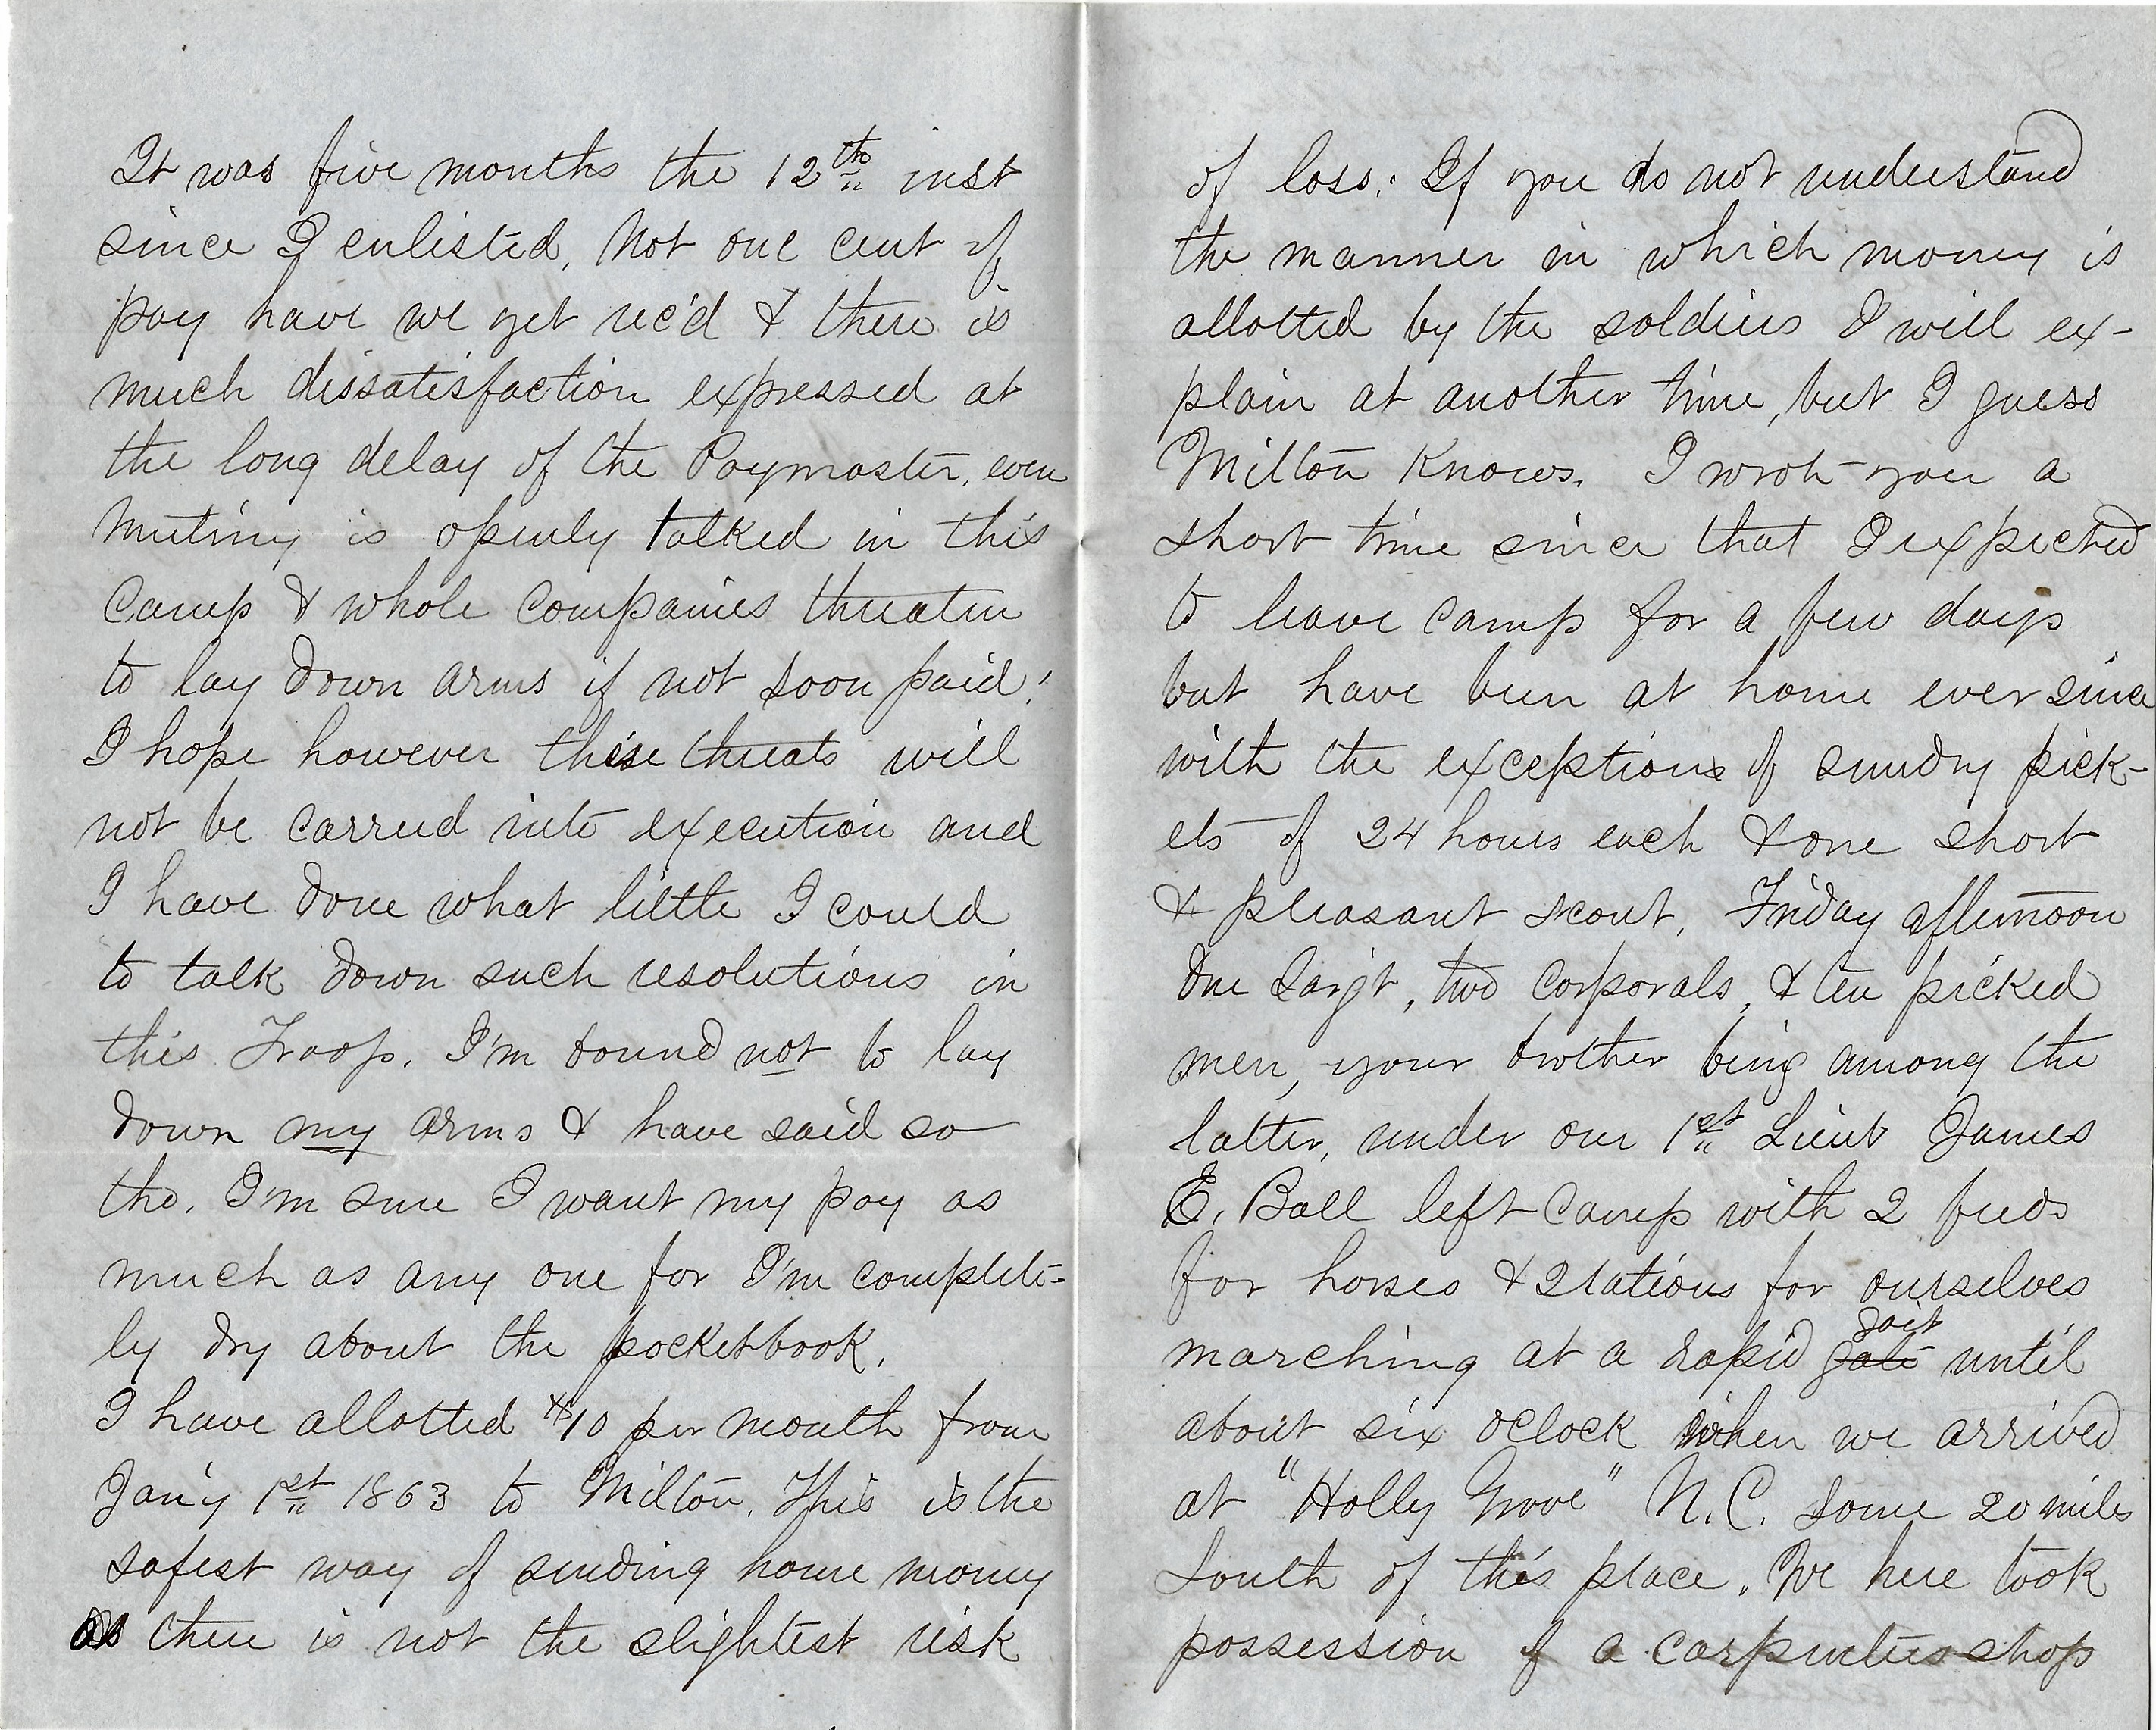 It was five months the 12th inst
since I enlisted, Not one cent of
pay have we yet rec'd & there is
much dissatisfaction expressed at
the long delay of the Paymaster, even
mutiny is openly talked in this
Camp & whole companies threaten
to lay down arms if not soon paid!
I hope however these threats will
not be carried into execution and
I have done what little I could
to talk down such resolutions in
this Troop. I'm bound not to lay
down my arms & have said so
tho. I'm sure I want my pay as
much as any one for I'm complete-
ly dry about the pocketbook.
I have allotted $10 per month from
Jan'y 1st 1863 to Milton. This is the
safest way of sending home money
as there is not the slightest risk
of loss. If you do not understand
the manner in which money is
allotted by the soldiers I will ex-
plain at another time, but I guess
Milton knows. I wrote you a
short time since that I expected
to leave camp for a few days
but have been at home ever since
with the exceptions of sundry pick-
ets of 24 hours each & one short
& pleasant scout. Friday afternoon
One Sargt, two Corporals, & ten picked
men, your brother being among the
latter, under our 1st Lieut James
E. Ball left Camp with 2 feeds
for horses & 2 rations for ourselves
marching at a rapid gate gait until
about six oclock when we arrived
at "Holly Grove" N.C. some 20 miles
South of this place. We here took
possession of a carpenters shop